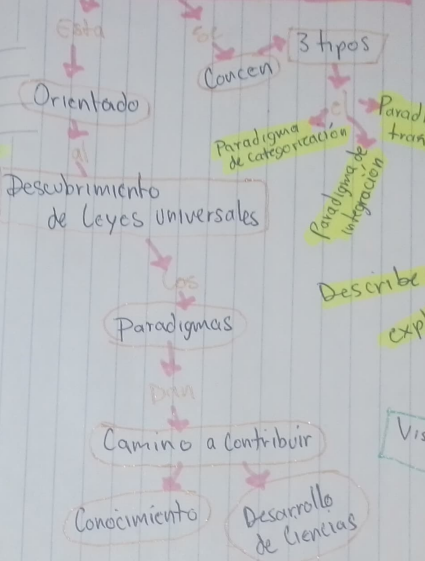 Está
Se
3 tipos
Concen
Orientado
el
Parad
tran
Paradigma
de categorización
Paradigma de
integración
al
Descubrimiento
de leyes universales
Los
Describe
exp
Paradigmas
Dan
Camino a contribuir
Vis
Conocimiento
Desarrollo
de Ciencias